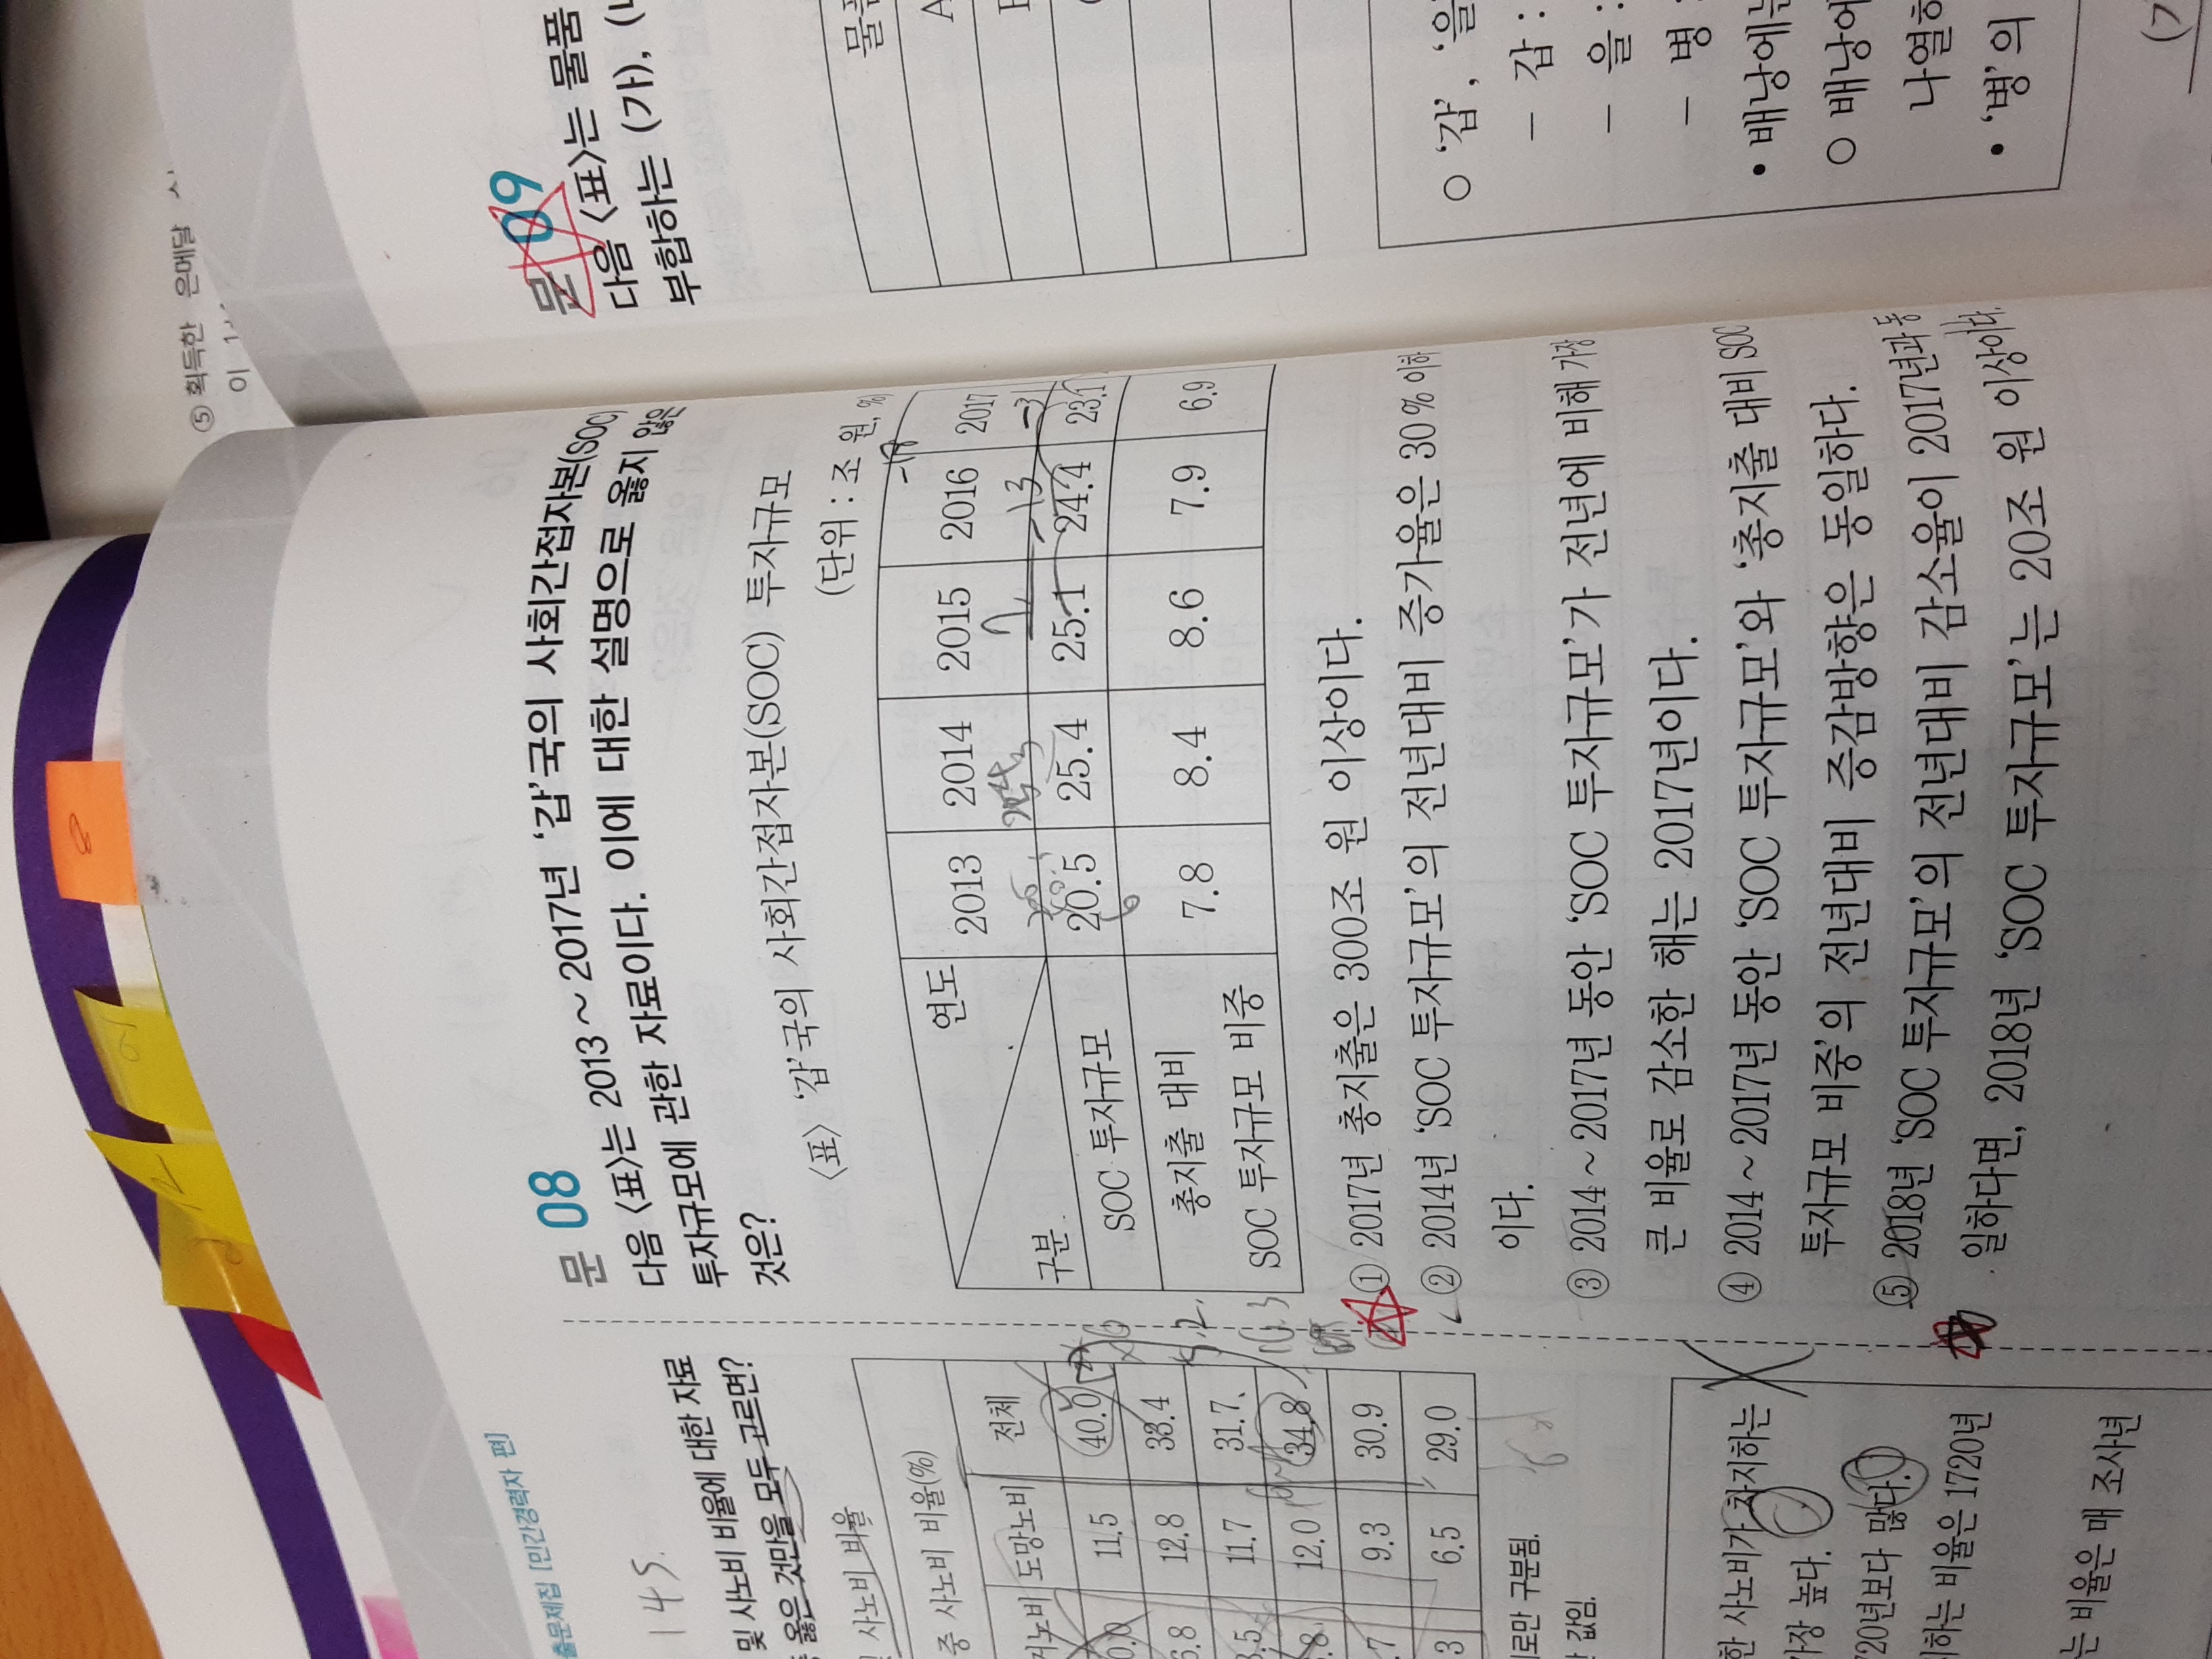 ⑤ 획득한 은메달
이
출문제집 [민간경력자 편]
145.
및 사노비 비율에 대한 자료
옳은 것만을 모두 고르면?
사노비 비율
중 사노비 비율(%)
노비 도망노비 전체
0.0 11.5 40.0
6.8 12.8 33.4
3.5 11.7 31.7
.8 12.0 34.8
.7 9.3 30.9
3 6.5 29.0
로만 구분됨.
값임.
한 사노비가 차지하는
가장 높다.
720년보다 많다.
하는 비율은 1720년
는 비율은 매 조사년
문 08
다음 〈표〉는 2013 ~ 2017년 ‘갑’국의 사회간접자본(SOC)
투자규모에 관한 자료이다. 이에 대한 설명으로 옳지 않은
것은?
〈표〉 ‘갑’국의 사회간접자본(SOC) 투자규모
(단위 : 조 원, %)
연도
구분 2013 2014 2015 2016 2017
SOC 투자규모 20.5 25.4 25.1 24.4 23.1
총지출 대비
SOC 투자규모 비중 7.8 8.4 8.6 7.9 6.9
① 2017년 총지출은 300조 원 이상이다.
② 2014년 ‘SOC 투자규모’의 전년대비 증가율은 30% 이하
이다.
③ 2014 ~ 2017년 동안 ‘SOC 투자규모’가 전년에 비해 가장
큰 비율로 감소한 해는 2017년이다.
④ 2014 ~ 2017년 동안 ‘SOC 투자규모’와 ‘총지출 대비 SOC
투자규모 비중’의 전년대비 증감방향은 동일하다.
⑤ 2018년 ‘SOC 투자규모’의 전년대비 감소율이 2017년과 동
일하다면, 2018년 ‘SOC 투자규모’는 20조 원 이상이다.
문 09
다음 〈표〉는 물품
부합하는 (가), (
물품
A
○ ‘갑’, ‘을’
- 갑 :
- 을 :
- 병
• 배낭에는
○ 배낭에
나열하
• ‘병’의
(가